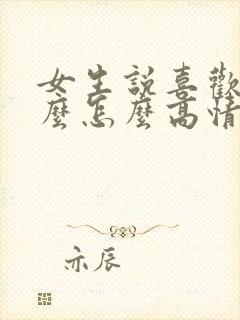 女生說喜歡
麼怎麼高情
亦辰